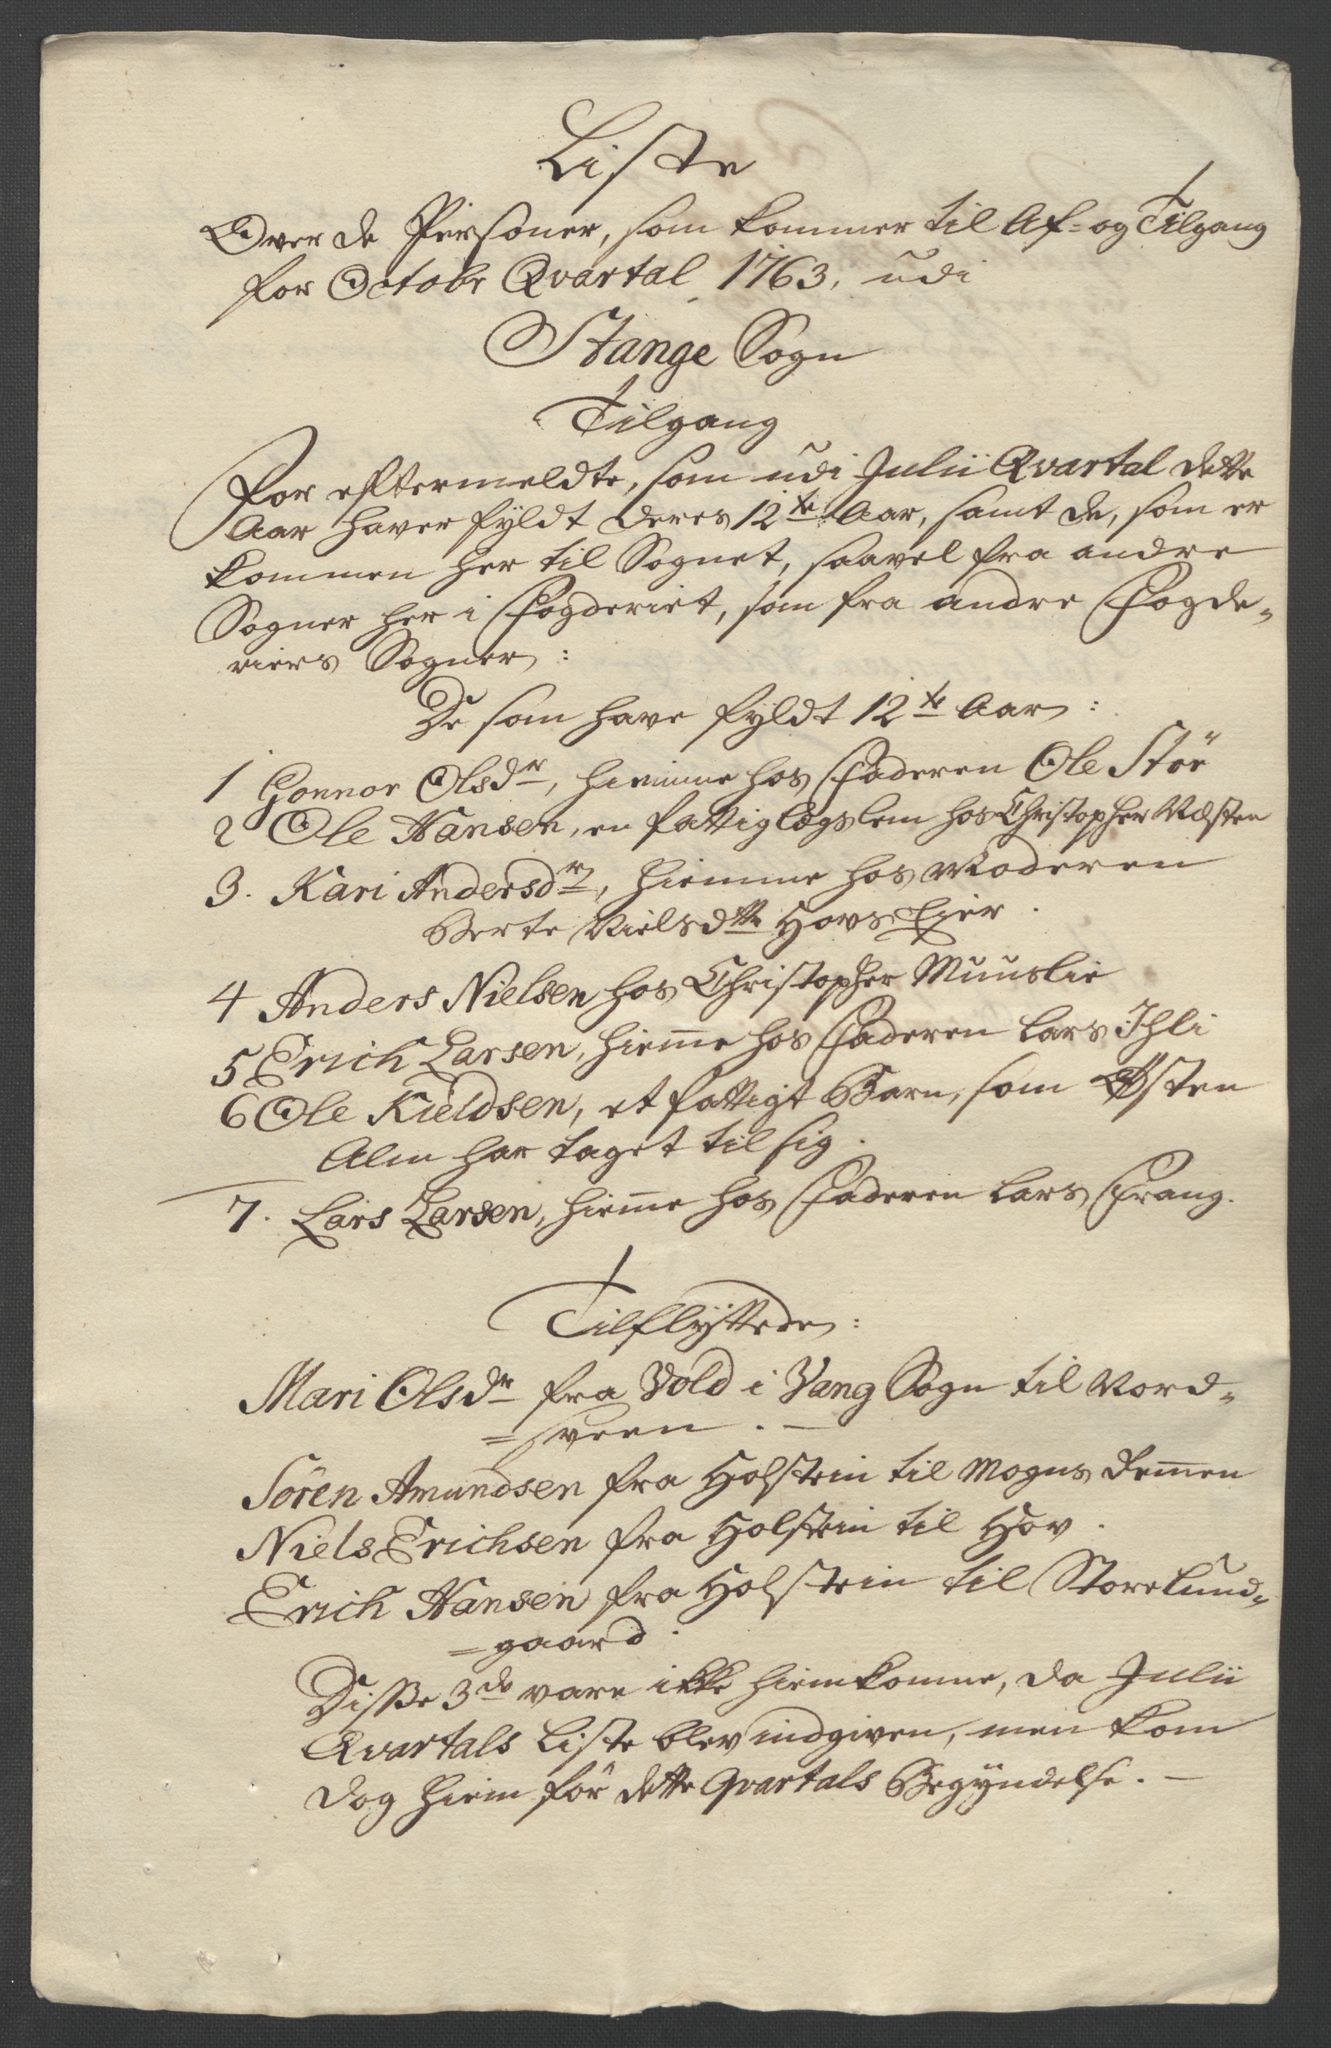 Liste
Over de Personer, som kommer til Af- og Tilgang
for Octobr Qvartal 1763, udi
Stange Sogn
Tilgang
For eftermeldte, som udi Julii Qvartal dette
Aar haver fyldt deres 12te Aar, samt de, som er
kommen her til Sognet, saavel fra andre
Sogner her i Fogderiet, som fra andre Fogde-
riers Sogner:
De som have fyldt 12te Aar:
1 Gonnor Olsdr, hiemme hos Faderen Ole Stör
2 Ole Hansen, en fattig lægslem hos Christopher Næsten
3. Kari Andersdr, hiemme hos Moderen
Berte Nielsdtr Hovs Eier.
4 Anders Nielsen hos Christopher Muuslie
5 Erich Larsen, hieme hos Faderen Lars Ihli
6 Ole Kieldsen, et fattigt Barn, som Østen
Alm har taget til sig.
7. Lars Larsen, hieme hos Faderen Lars Frang.
Tilflyttede:
Mari Olsdr fra Vold i Vang Sogn til Nord-
=sveen.
Sören Amundsen fra Holstein til Mogns Demen
Niels Erichsen fra Holstein til Hov.
Erich Hansen fra Holstein til Storelund-
=gaard.
Disse 3de vare ikke hiemkomne, da Julii
Qvartals Liste blev indgiven, men kom
dog hiem för dette Qvartals Begyndelse.